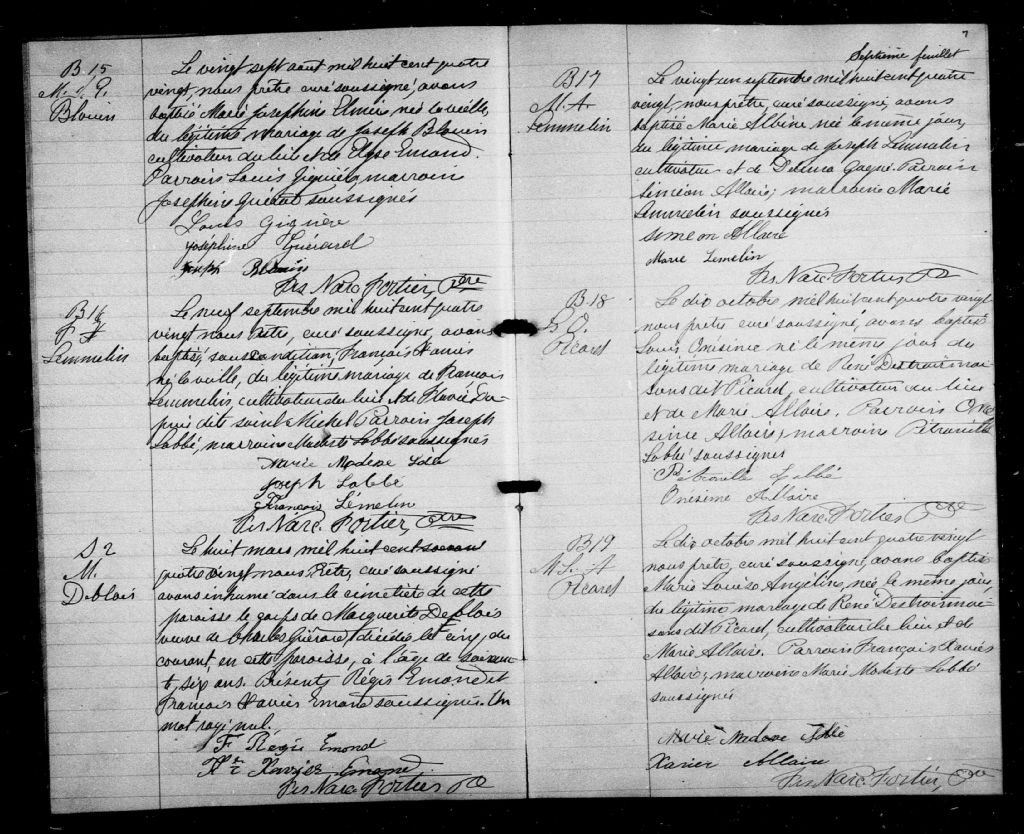 B 15
M. J. E.
Blouin
Le vingt sept aout mil huit cent quatre
vingt, nous prêtre curé soussigné, avons
baptisé Marie Josephine Elmire, née la veille,
du légitime mariage de Joseph Blouin
cultivateur du lieu et de Elyse Emond.
Parrain Louis Giguière, marraine
Josephine Guérard soussignés
Louis Giguière
Joséphine Guérard
Joseph Blouin
Frs Narc. Fortier, Ptre
B 16
F X
Lemmelin
Le neuf septembre mil huit cent quatre
vingt nous Prêtre, curé soussigné, avons
baptisé, sous condition, François Xavier
né la veille, du légitime mariage de François
Lemmelin cultivateur du lieu et de Flavie Du-
puis dite saint Michel Parrain Joseph
Labbé, marraine Modeste Labbé soussignés
Marie Modeste Labbé
Joseph Labbé
François Lémelin
Frs Narc. Fortier, Ptre
S 2
M.
Deblois
Le huit mars mil huit cent soixan
quatre vingt nous, Prêtre, curé soussigné
avons inhumé dans le cimetière de cette
paroisse le corps de Marguerite Deblois
veuve de Charles Guérard, décédée le cinq, du
courant, en cette paroisse, à l'âge de soixan-
te, six ans. Présents Régis Emond et
François Xavier Emond soussignés. Un
mot rayé nul.
F Régis Emond
Frs Xavier Emond
Frs Narc. Fortier Ptre
7
Septième feuillet
B 17
M. A
Lemmelin
Le vingt un septembre mil huit cent quatre
vingt, nous prêtre, curé soussigné, avons
baptisé Marie Albine née le même jour,
du légitime mariage de Joseph Lemmelin
cultivateur et de Delima Gagné. Parrain
Siméon Allaire; marraine Marie
Lemmelin soussignés
Simeon Allaire
Marie Lemelin
Frs Narc. Fortier Ptre
B 18
L. O.
Picard
Le dix octobre mil huit cent quatre vingt
nous prêtre curé soussigné, avons baptisé
Louis Onésime né le même jour du
légitime mariage de René Destroismai
sons dit Picard, cultivateur du lieu
et de Marie Allaire. Parrain One
sime Allaire, marraine Pétronille
Labbé soussignés
Pétronille Labbé
Onesime Allaire
Frs Narc. Fortier Ptre
B 19
M. L. A
Picard
Le dix octobre mil huit cent quatre vingt
nous prêtre, curé soussigné, avons baptisé
Marie Louise Angeline, née le même jour,
du légitime mariage de René Destroismai-
sons dit Picard, cultivateur du lieu et de
Marie Allaire. Parrain François Xavier
Allaire, marraine Marie Modeste Labbé
soussignés
Marie Modeste Labbé
Xavier Allaire
Frs Narc. Fortier, Ptre